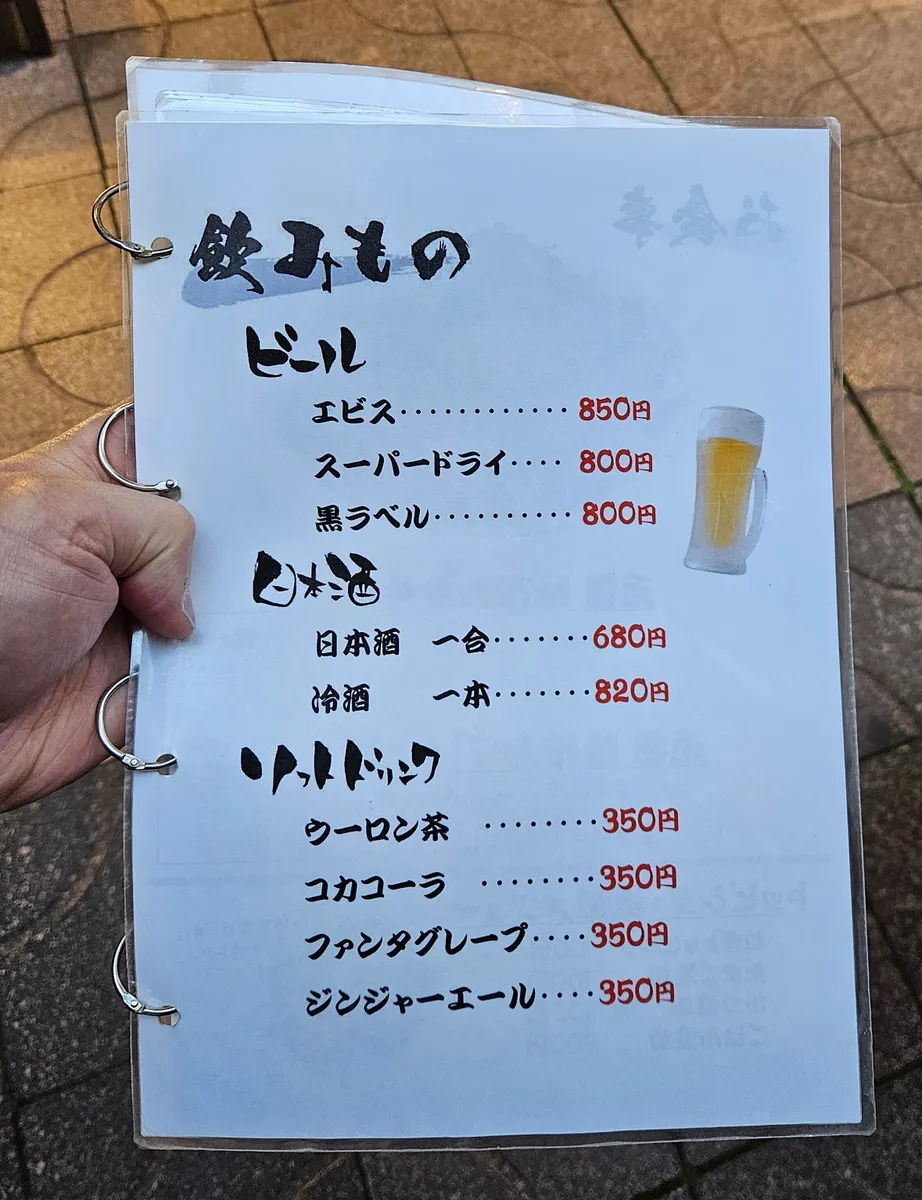 飲みもの
ビール
エビス············850円
スーパードライ····800円
黒ラベル··········800円
日本酒
日本酒　一合·······680円
冷酒　一本·······820円
ソフトドリンク
ウーロン茶　········350円
コカコーラ　········350円
ファンタグレープ····350円
ジンジャーエール····350円